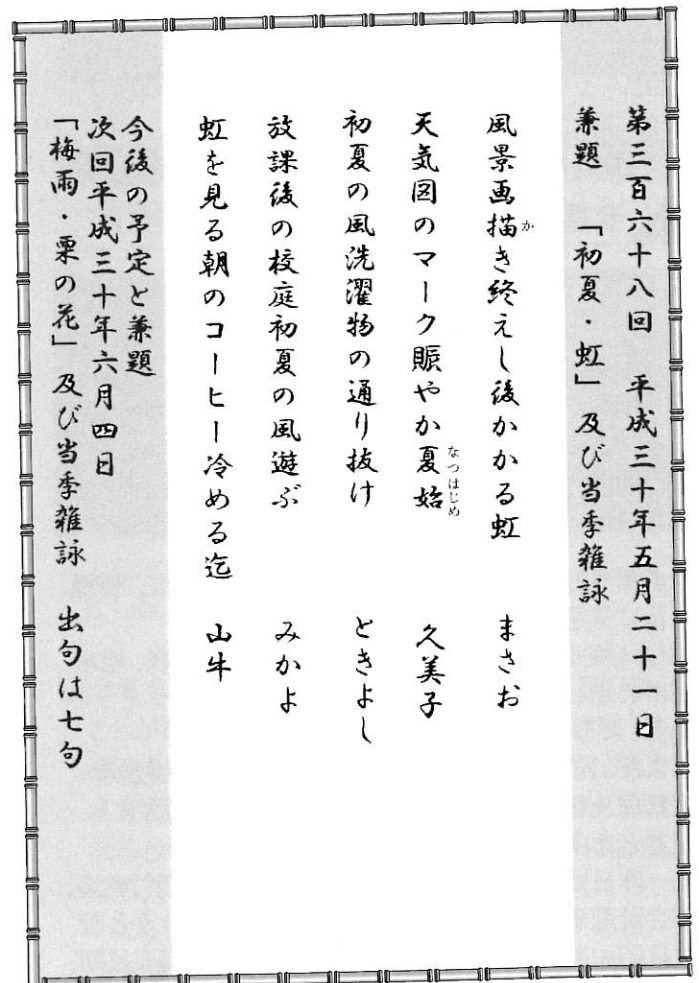 第三百六十八回　平成三十年五月二十一日
兼題　「初夏・虹」及び当季雑詠
風景画描き終えし後かかる虹　まさお
か
天気図のマーク賑やか夏始　久美子
なつはじめ
初夏の風洗濯物の通り抜け　ときよし
放課後の校庭初夏の風遊ぶ　みかよ
虹を見る朝のコーヒー冷める迄　山牛
今後の予定と兼題
次回平成三十年六月四日
「梅雨・栗の花」及び当季雑詠　出句は七句